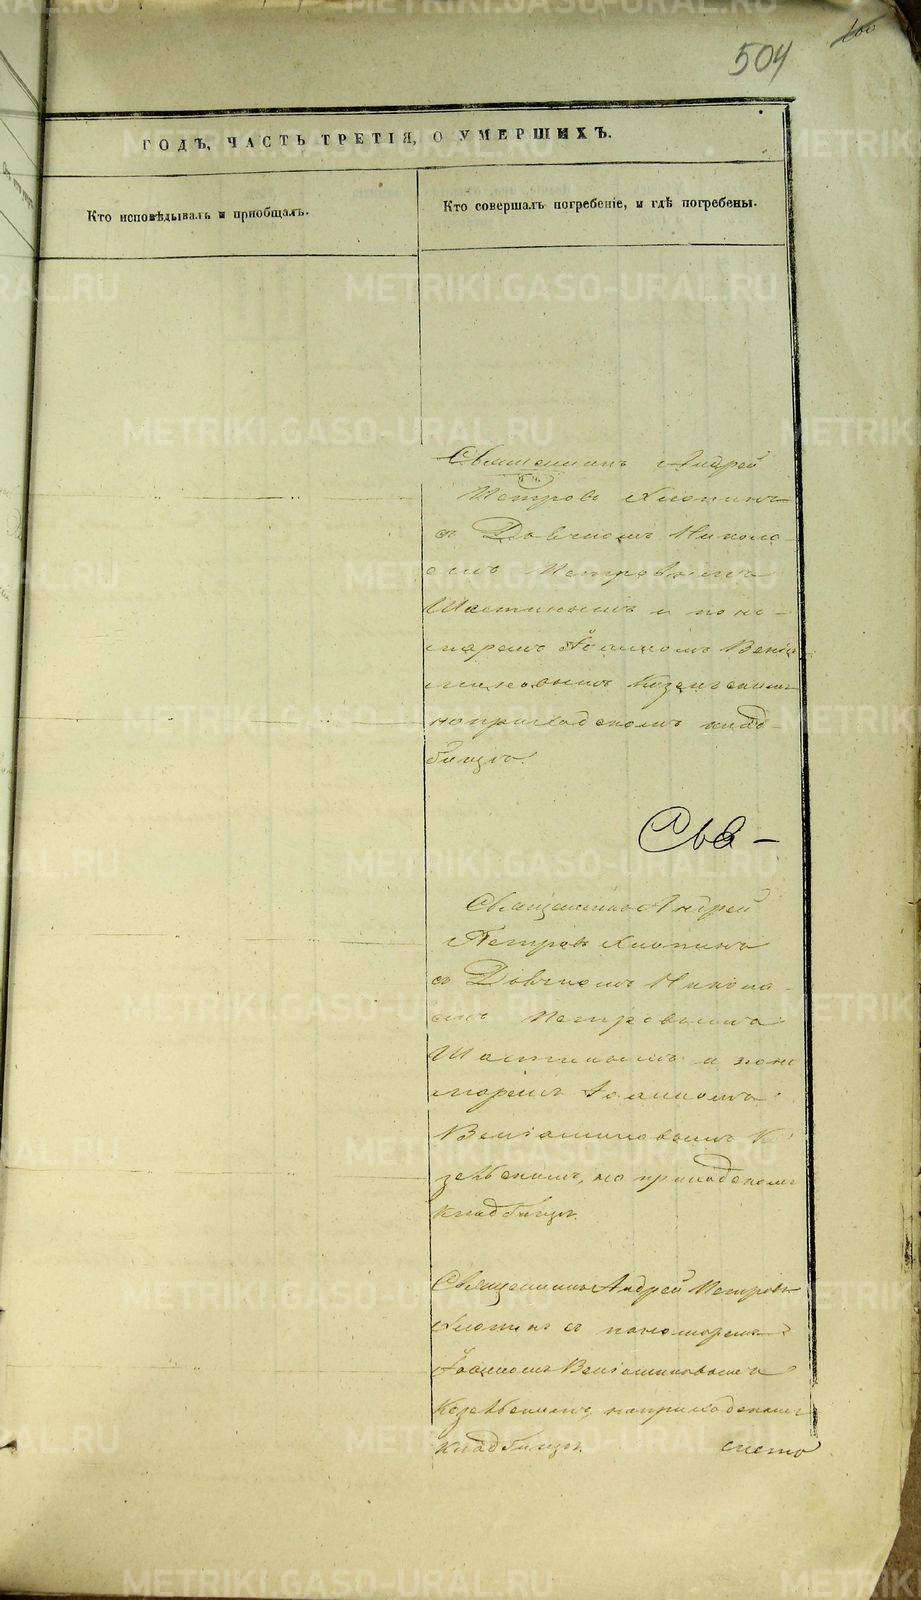 504
ГОДЪ, ЧАСТЬ ТРЕТІЯ, О УМЕРШИХЪ.
Кто исповѣдывалъ и пріобщалъ.
Кто совершалъ погребеніе, и гдѣ погребены.
Священникъ Андрей
Петровъ Хлопинъ
съ Дьячкомъ Никола-
емъ Петровымъ
Шастинымъ и поно-
маремъ Іоанномъ Веніа-
миновымъ
на приходскомъ клад-
бищѣ.
Священникъ Андрей
Петровъ Хлопинъ
съ Дьячкомъ Никола-
емъ Петровымъ
Шастинымъ и поно
маремъ Іоанномъ
Веніаминовымъ
на приходскомъ
кладбищѣ.
Священникъ Андрей Петровъ
Хлопинъ съ пономаремъ
Іоанномъ Веніаминовымъ
на приходскомъ
кладбищѣ.
METRIKI.GASO-URAL.RU